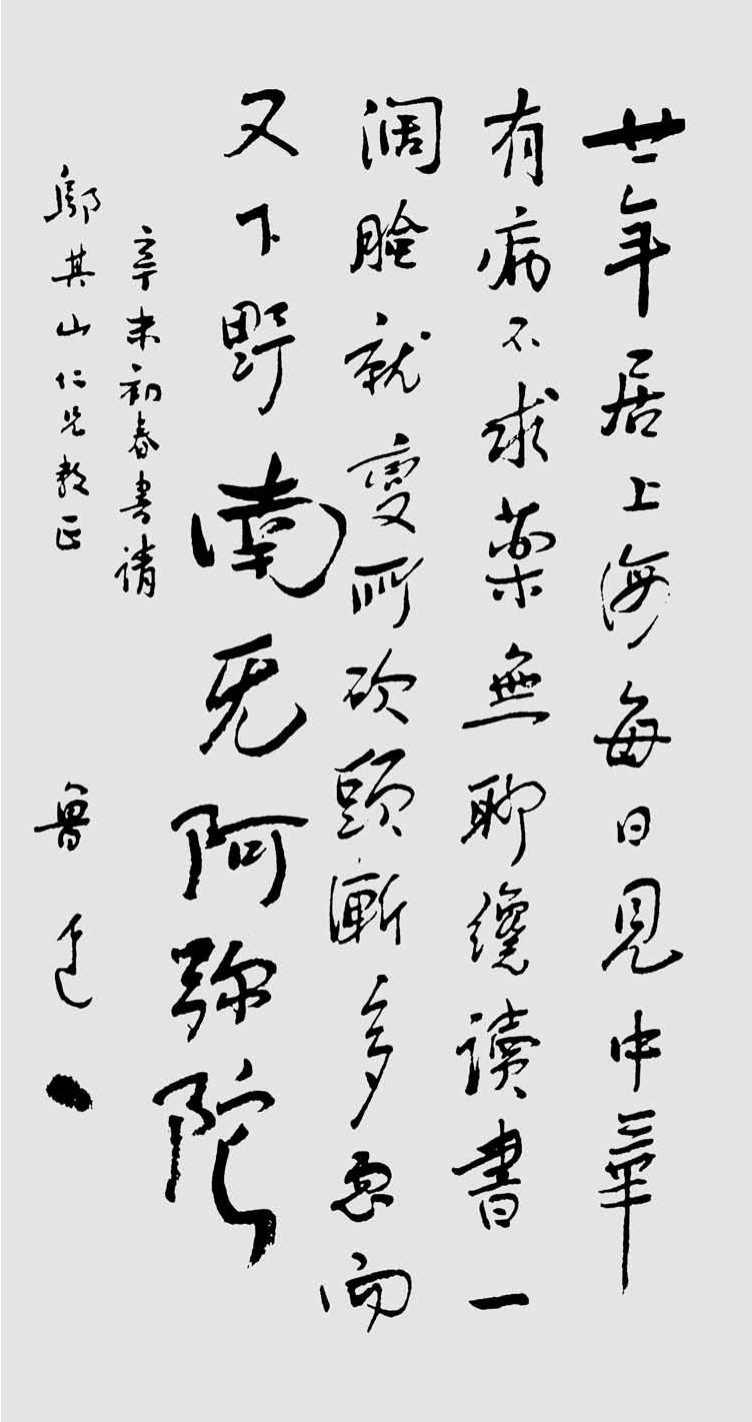 廿年居上海每日見中華
有病不求藥無聊纔讀書一
闊臉就變所砍頭漸多忽而
又下野南无阿彌陀
辛未初春書請
鄔其山仁兄教正
魯迅